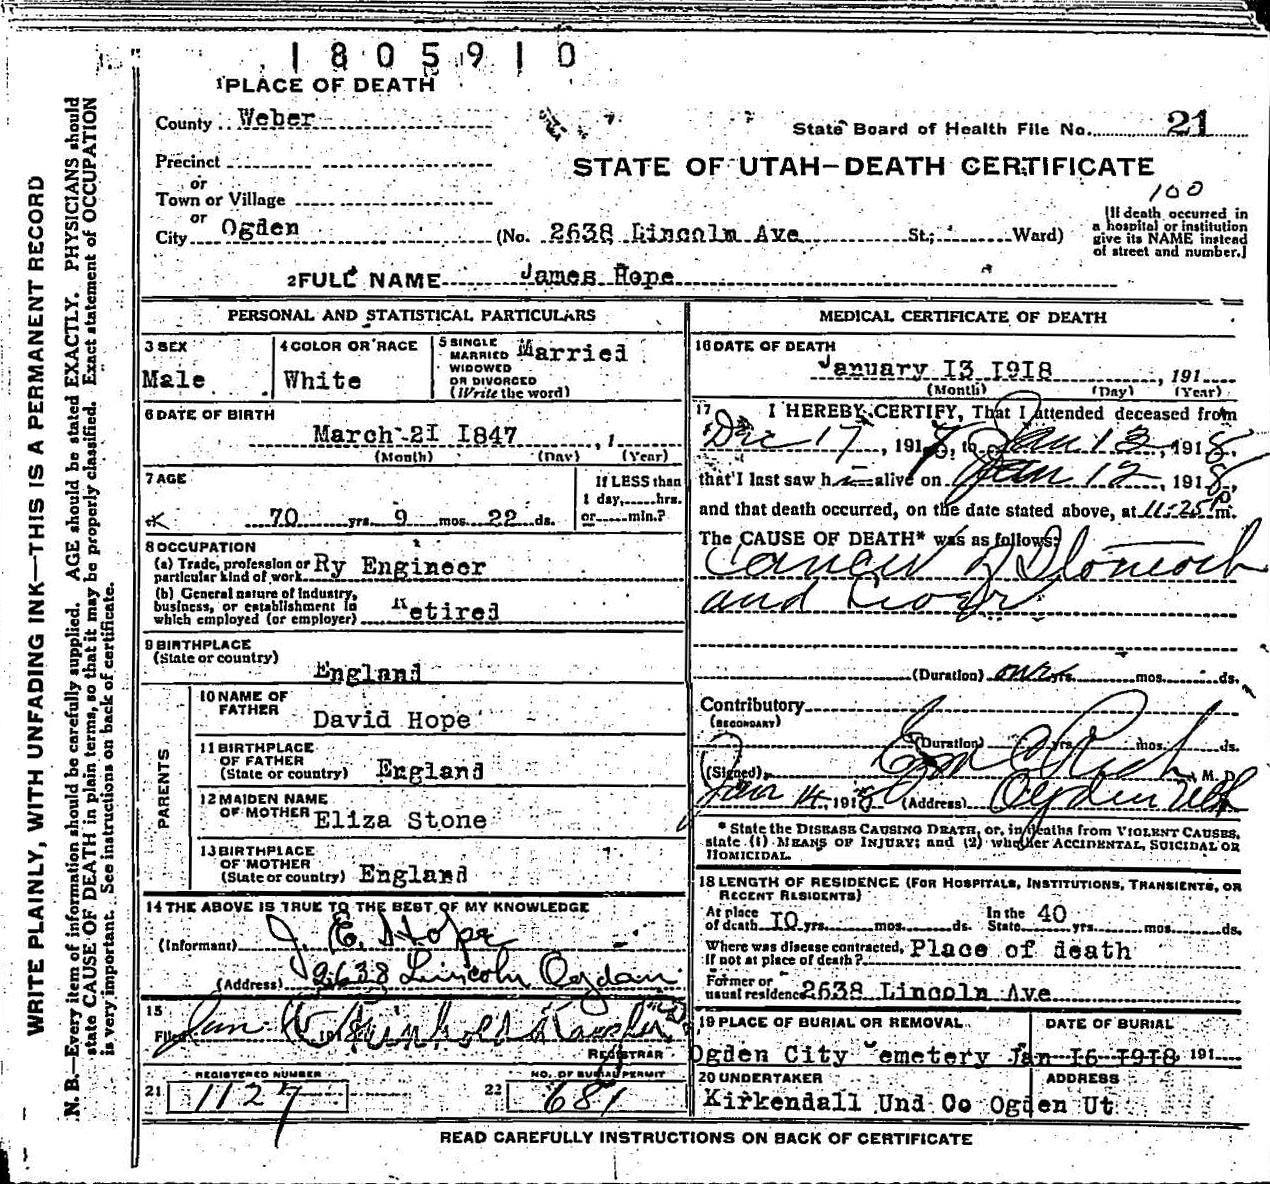 1805910
1 PLACE OF DEATH
County Weber
State Board of Health File No. 21
Precinct
STATE OF UTAH—DEATH CERTIFICATE
or
Town or Village
100
or
City Ogden (No. 2638 Lincoln Ave St.; Ward)
[If death occurred in
a hospital or institution
give its NAME instead
of street and number.]
2 FULL NAME James Hope
PERSONAL AND STATISTICAL PARTICULARS
3 SEX
Male
4 COLOR OR RACE
White
5 SINGLE
MARRIED
WIDOWED
OR DIVORCED
(Write the word)
Married
6 DATE OF BIRTH
March 21 1847 , 1
(Month) (Day) (Year)
7 AGE
70 yrs. 9 mos. 22 ds.
If LESS than
1 day, hrs.
or min.?
8 OCCUPATION
(a) Trade, profession or
particular kind of work Ry Engineer
(b) General nature of industry,
business, or establishment in
which employed (or employer) Retired
9 BIRTHPLACE
(State or country)
England
PARENTS
10 NAME OF
FATHER
David Hope
11 BIRTHPLACE
OF FATHER
(State or country) England
12 MAIDEN NAME
OF MOTHER Eliza Stone
13 BIRTHPLACE
OF MOTHER
(State or country) England
14 THE ABOVE IS TRUE TO THE BEST OF MY KNOWLEDGE
(Informant) J. E. Hope
(Address) 2638 Lincoln Ogden
15
Filed Jan
REGISTRAR
REGISTERED NUMBER
21 1127
NO. OF BURIAL PERMIT
22 681
MEDICAL CERTIFICATE OF DEATH
16 DATE OF DEATH
January 13 1918 , 191
(Month) (Day) (Year)
17 I HEREBY CERTIFY, That I attended deceased from
Dec 17 , 1917, to Jan 13, 1918,
that I last saw him alive on Jan 12, 1918,
and that death occurred, on the date stated above, at 11-25 P m.
The CAUSE OF DEATH* was as follows:
Cancer of Stomach
and Liver
(Duration) one yrs. mos. ds.
Contributory
(SECONDARY)
(Duration) yrs. mos. ds.
(Signed) Rich M. D.
Jan 14, 1918 (Address) Ogden Utah
* State the DISEASE CAUSING DEATH, or, in deaths from VIOLENT CAUSES,
state (1) MEANS OF INJURY; and (2) whether ACCIDENTAL, SUICIDAL OR
HOMICIDAL.
18 LENGTH OF RESIDENCE (FOR HOSPITALS, INSTITUTIONS, TRANSIENTS, OR
RECENT RESIDENTS)
At place
of death 10 yrs. mos. ds.
In the
State 40 yrs. mos. ds.
Where was disease contracted,
If not at place of death? Place of death
Former or
usual residence 2638 Lincoln Ave
19 PLACE OF BURIAL OR REMOVAL
DATE OF BURIAL
Ogden City Cemetery Jan 16 1918 191
20 UNDERTAKER
ADDRESS
Kirkendall Und Co Ogden Ut
READ CAREFULLY INSTRUCTIONS ON BACK OF CERTIFICATE
WRITE PLAINLY, WITH UNFADING INK—THIS IS A PERMANENT RECORD
N. B.—Every item of information should be carefully supplied. AGE should be stated EXACTLY. PHYSICIANS should
state CAUSE OF DEATH in plain terms, so that it may be properly classified. Exact statement of OCCUPATION
is very important. See instructions on back of certificate.